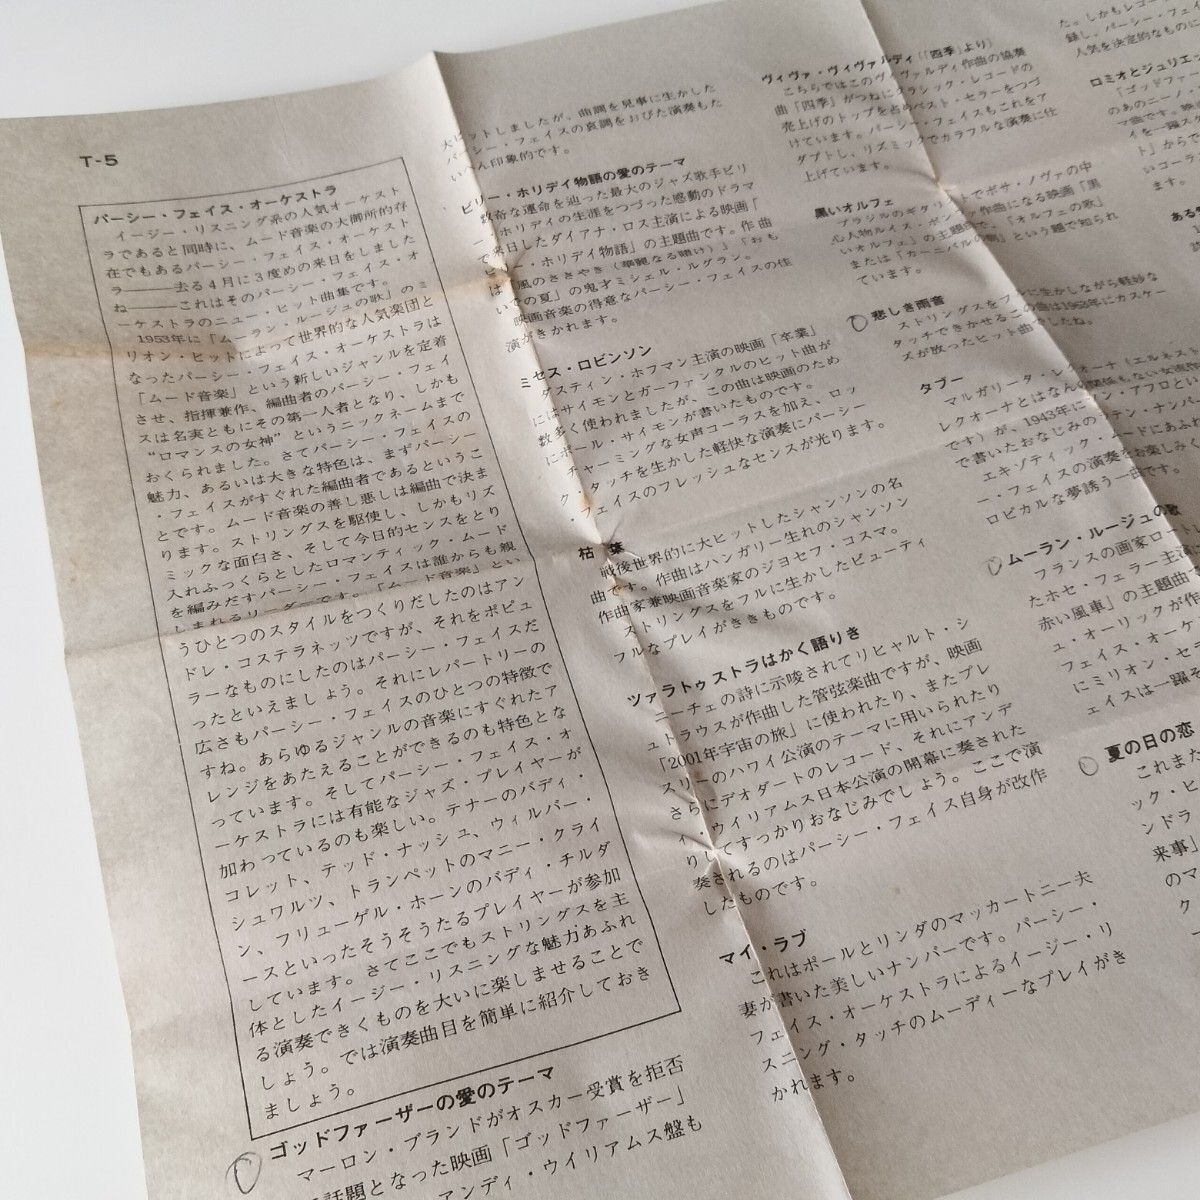 T-5
パーシー・フェイス・オーケストラ
イージー・リスニング系の人気オーケスト
ラであると同時に、ムード音楽の大御所的存
在でもあるパーシー・フェイス・オーケスト
ラ――去る4月に3度めの来日をしました
ね――これはそのパーシー・フェイス・オ
ーケストラのニュー・ヒット曲集です。
1953年に「ムーラン・ルージュの歌」のミ
リオン・ヒットによって世界的な人気楽団と
なったパーシー・フェイス・オーケストラは
「ムード音楽」という新しいジャンルを定着
させ、指揮兼作、編曲者のパーシー・フェイ
スは名実ともにその第一人者となり、しかも
“ロマンスの女神”というニックネームまで
おくられました。さてパーシー・フェイスの
魅力、あるいは大きな特色は、まずパーシー
・フェイスがすぐれた編曲者であるというこ
とです。ムード音楽の善し悪しは編曲で決ま
ります。ストリングスを駆使し、しかもリズ
ミックな面白さ、そして今日的センスをとり
入れふっくらとしたロマンティック・ムード
を編みだすパーシー・フェイスは誰からも親
しまれるリーダーです。「ムード音楽」とい
うひとつのスタイルをつくりだしたのはアン
ドレ・コステラネッツですが、それをポピュ
ラーなものにしたのはパーシー・フェイスだ
ったといえましょう。それにレパートリーの
広さもパーシー・フェイスのひとつの特徴で
すね。あらゆるジャンルの音楽にすぐれたア
レンジをあたえることができるのも特色とな
っています。そしてパーシー・フェイス・オ
ーケストラには有能なジャズ・プレイヤーが
加わっているのも楽しい。テナーのバディ・
コレット、テッド・ナッシュ、ウィルバー・
シュワルツ、トランペットのマニー・クライ
ン、フリューゲル・ホーンのバディ・チルダ
ースといったそうそうたるプレイヤーが参加
しています。さてここでもストリングスを主
体としたイージー・リスニングな魅力あふれ
る演奏できくものを大いに楽しませることで
しょう。では演奏曲目を簡単に紹介しておき
ましょう。
ゴッドファーザーの愛のテーマ
マーロン・ブランドがオスカー受賞を拒否
話題となった映画「ゴッドファーザー」
アンディ・ウイリアムス盤も
大ヒットしましたが、曲調を見事に生かした
パーシー・フェイスの哀調をおびた演奏もた
いへん印象的です。
ビリー・ホリデイ物語の愛のテーマ
数奇な運命を辿った最大のジャズ歌手ビリ
ー・ホリデイの生涯をつづった感動のドラマ
で来日したダイアナ・ロス主演による映画「
ビリー・ホリデイ物語」の主題曲です。作曲
は「風のささやき(華麗なる賭け)」「おも
いでの夏」の鬼才ミシェル・ルグラン。
映画音楽の得意なパーシー・フェイスの佳
演がきかれます。
ミセス・ロビンソン
ダスティン・ホフマン主演の映画「卒業」
にはサイモンとガーファンクルのヒット曲が
数多く使われましたが、この曲は映画のため
にポール・サイモンが書いたものです。
チャーミングな女声コーラスを加え、ロッ
ク・タッチを生かした軽快な演奏にパーシー
・フェイスのフレッシュなセンスが光ります。
枯葉
戦後世界的に大ヒットしたシャンソンの名
曲です。作曲はハンガリー生れのシャンソン
作曲家兼映画音楽家のジョセフ・コスマ。
ストリングスをフルに生かしたビューティ
フルなプレイがききものです。
ツァラトゥストラはかく語りき
ニーチェの詩に示唆されてリヒャルト・シ
ュトラウスが作曲した管弦楽曲ですが、映画
「2001年宇宙の旅」に使われたり、またプレ
スリーのハワイ公演のテーマに用いられたり
さらにデオダートのレコード、それにアンデ
ィ・ウイリアムス日本公演の開幕に奏された
りしてすっかりおなじみでしょう。ここで演
奏されるのはパーシー・フェイス自身が改作
したものです。
マイ・ラブ
これはポールとリンダのマッカートニー夫
妻が書いた美しいナンバーです。パーシー・
フェイス・オーケストラによるイージー・リ
スニング・タッチのムーディーなプレイがき
かれます。
ヴィヴァ・ヴィヴァルディ(「四季」より)
こちらではこのヴィヴァルディ作曲の協奏
曲「四季」がつねにクラシック・レコードの
売上げのトップを占めベスト・セラーをつづ
けています。パーシー・フェイスもこれをア
ダプトし、リズミックでカラフルな演奏に仕
上げています。
黒いオルフェ
ブラジルのギタリストでボサ・ノヴァの中
心人物ルイス・ボンファ作曲になる映画「黒
いオルフェ」の主題曲で、「オルフェの歌」
または「カーニバルの朝」という題で知られ
ています。
悲しき雨音
ストリングスをフルに生かしながら軽妙な
タッチできかせるこの曲は1963年にカスケー
ズが放ったヒット曲でしたね。
タブー
マルガリータ・レクオーナ(エルネスト・
レクオーナとはなんの関係もない女流作
です)が、1943年に
で書いたおなじみの
エキゾティック・ムードにあふれ
ー・フェイスの演奏をお楽しみく
ロピカルな夢誘う一曲です。
ムーラン・ルージュの歌
フランスの画家ロー
たホセ・フェラー主演
赤い風車」の主題曲
ュ・オーリックが作
フェイス・オーケ
にミリオン・セラ
ェイスは一躍そ
夏の日の恋
これまた
ック・ヒ
ンドラ
来事」
のマ
ク
た。しかもレコー
録し、パーシー・フェイ
人気を決定的なものに
ロミオとジュリエッ
「ゴッドファー
のあのニーノ・
マ曲です。映
イを一躍スタ
ト」からで
いコーラ
ます。
ある